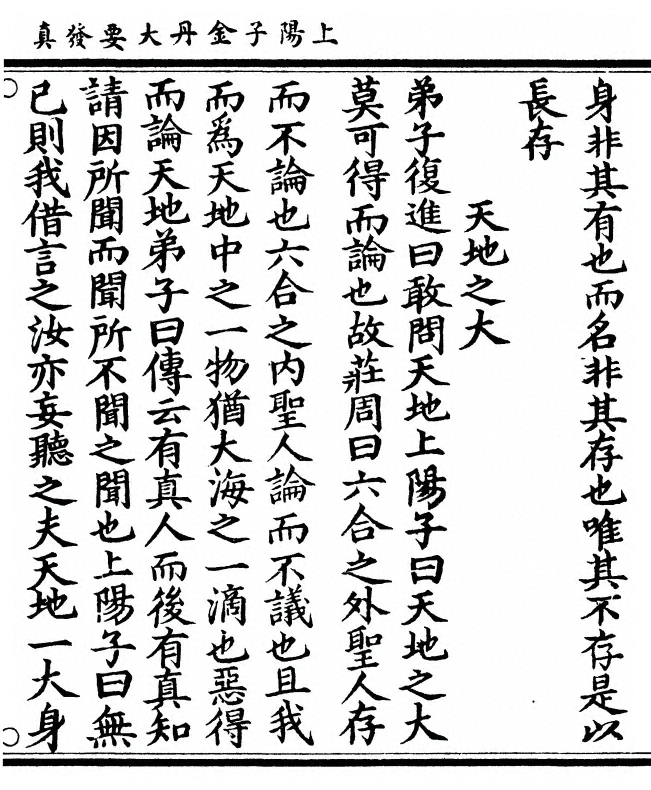 上陽子金丹大要發真
身非其有也而名非其存也唯其不存是以
長存
天地之大
弟子復進曰敢問天地上陽子曰天地之大
莫可得而論也故莊周曰六合之外聖人存
而不論也六合之內聖人論而不議也且我
而爲天地中之一物猶大海之一滴也惡得
而論天地弟子曰傳云有真人而後有真知
請因所聞而聞所不聞之聞也上陽子曰無
已則我借言之汝亦妄聽之夫天地一大身